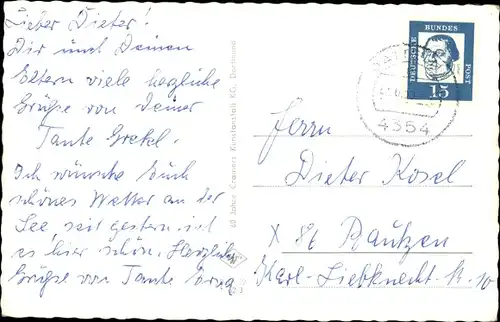 Lieber Dieter!
Dir und Deinen
Eltern viele herzliche
Grüße von Deiner
Tante Gretel.
Ich wünsche Euch
schönes Wetter an der
See, seit gestern ist
es hier schön. Herzliche
Grüße von Tante Erna
60 Jahre Krasners Kunstanstalt KG, Dortmund
DEUTSCHE BUNDES POST
15
4354
Herrn
Dieter Kosel
X 86 Bautzen
Karl-Liebknecht-St. 10